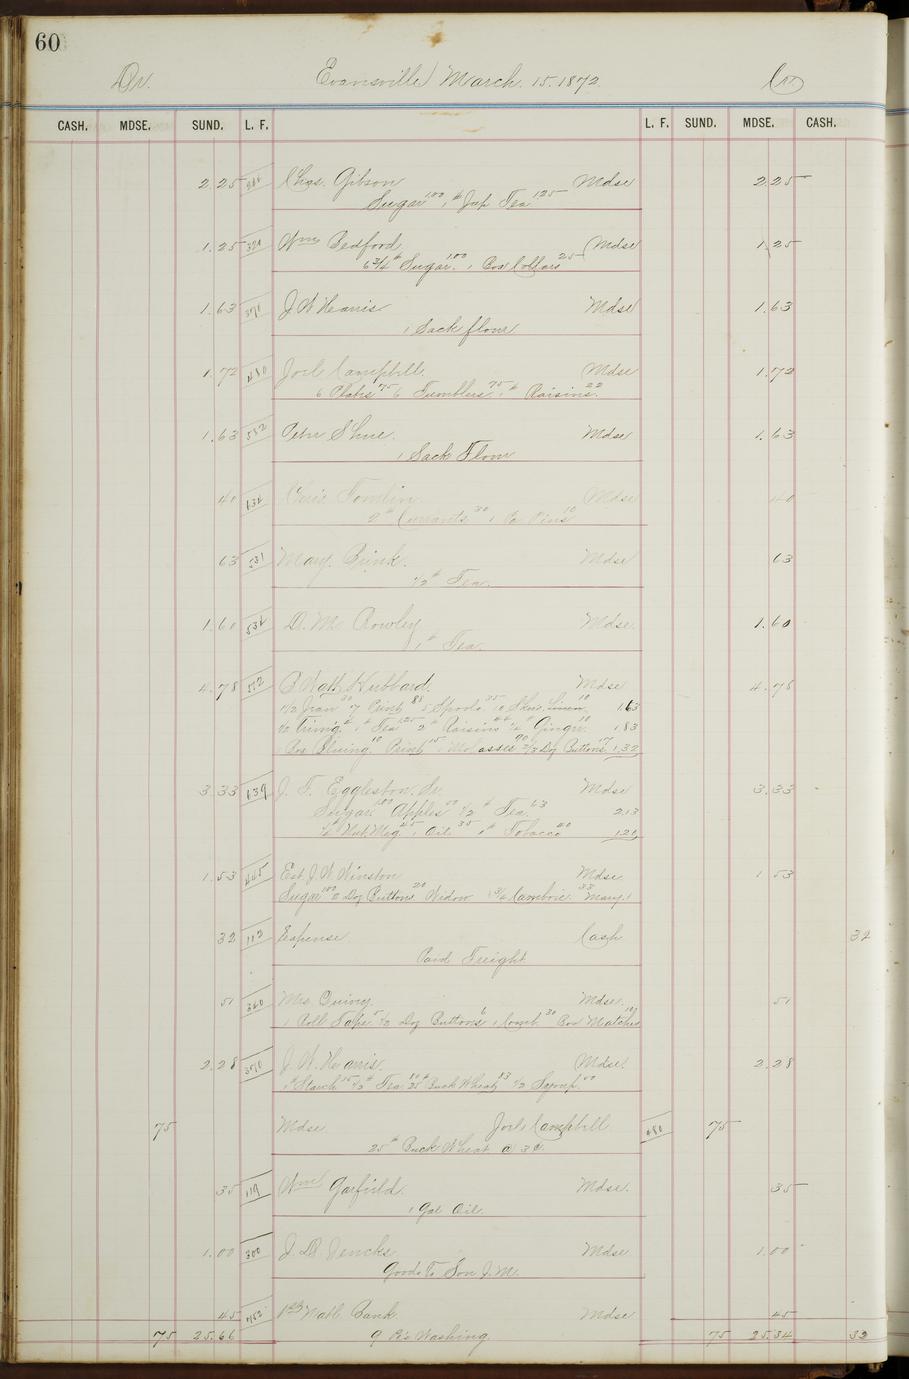 60
Dr. Evansville March. 15. 1872. Cr
CASH. MDSE. SUND. L. F. L. F. SUND. MDSE. CASH.
2.25 Chas. Gibson Mdse 2.25
Sugar 1.00 1 # Jap Tea 1.25
1.25 Wm Bedford Mdse 1.25
6 3/4 # Sugar 1.00 1 Box Collars 25
1.63 371 J W Hearris Mdse 1.63
1 Sack flour
1.72 480 Joel Campbell Mdse 1.72
6 Plates 75 6 Tumblers 75 1 # Raisins 22
1.63 532 Peter Shue. Mdse 1.63
1 Sack Flour
40 634 Chris Tomlin Mdse 40
2 # Currants 30 1 Pa Pins 10
63 531 Mary. Brink. Mdse 63
1/2 # Tea.
1.60 534 D. Mc Rowley Mdse. 1.60
1 # Tea.
4.78 552 Hubbard. Mdse 4.78
7 Print 88 5 Spools 35 10 Linen 10 1.63
1 # Tea 1.25 2 # Raisins 44 Ginger 10 1.83
1 Box Bluing 10 Print 15 1 Molasses 90 2/3 Doz Buttons 17 1.32
3.33 639 J. F. Eggleston. Sr. Mdse 3.33
Sugar 1.00 Apples 50 1/2 # Tea 63 2.13
Nut. Meg. 45 1 Oil 35 1 # Tobacco 40 1.20
1.53 445 Est J. W Winston Mdse 1 53
Sugar 1.00 2 Doz Buttons 20 Widow 1 3/4 Cambric 33 Mary.
32 112 Expense Cash 32
Paid Freight
51 340 Mrs. Quiny. Mdse. 51
1 Roll Tape 5 1/2 Doz Buttons 6 1 Comb 30 Box Matches 10
2.28 370 J. W. Hearris. Mdse. 2.28
1 # Starch 15 1/2 # Tea 25 # Buck Wheat 1/2 Syrup 50
75 Mdse Joel Campbell 480 75
25 # Buck Wheat @ 3¢.
35 119 Wm Garfield. Mdse. 35
1 Gal Oil.
1.00 300 J D Jencks Mdse 1.00
Goods To Son J. M.
45 452 1st Natl. Bank. Mdse 45
75 25.66 9 Washing. 75 25.34 32